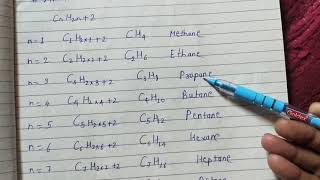 CnH2n+2
n=1 C1H2×1+2 CH4 Methane
n=2 C2H2×2+2 C2H6 Ethane
n=3 C3H2×3+2 C3H8 Propane
n=4 C4H2×4+2 C4H10 Butane
n=5 C5H2×5+2 C5H12 Pentane
n=6 C6H2×6+2 C6H14 Hexane
n=7 C7H2×7+2 C7H16 Heptane